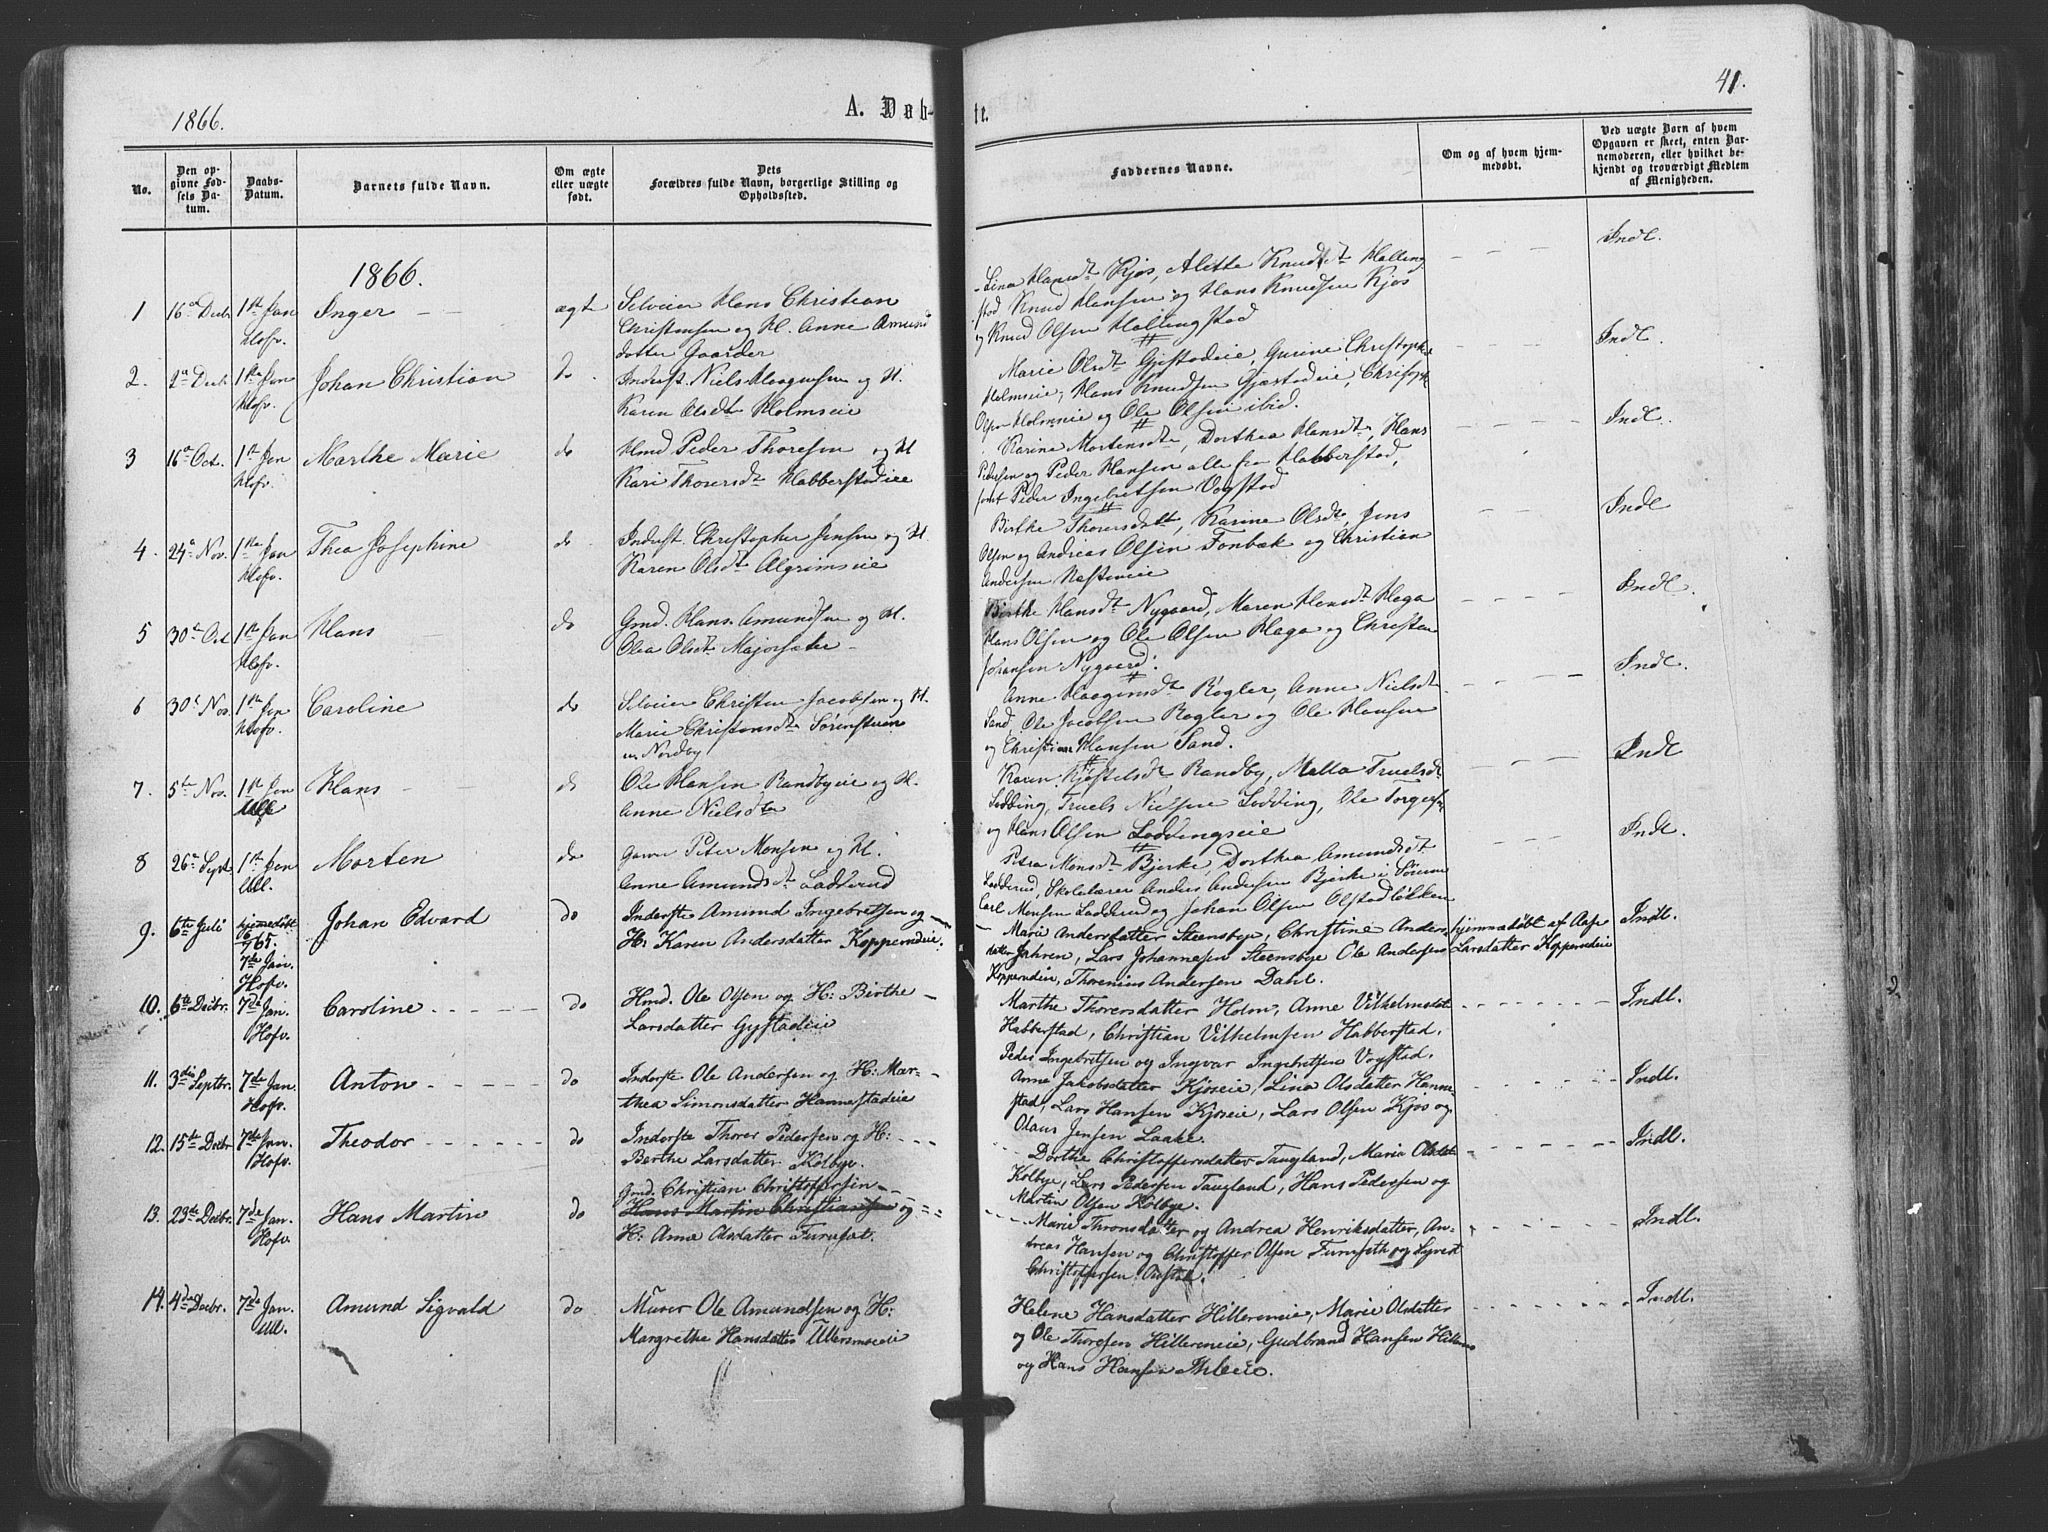 1866.
A. Døb-
te.
41.
No.
Den opgivne Fødsels Datum.
Daabs-Datum.
Barnets fulde Navn.
Om ægte eller uægte født.
Dets
Forældres fulde Navn, borgerlige Stilling og
Opholdssted.
Faddernes Navne.
Om og af hvem hjemmedøbt.
Ved uægte Børn af hvem
Opgaven er skeet, enten Barnemoderen, eller hvilket bekjendt og troværdigt Medlem
af Menigheden.
1866.
1 16 Decbr 1ste Jan Inger ægte Selveier Hans Christian
Hofv. Christensen og H. Anne Amunds
datter Gaarder
Lina Hansdtr Kjos, Alette Knudsdtr Halling
stad Knud Hansen og Hans Knudsen Kjos
og Knud Olsen Hallingstad
Indl.
2. 2 Decbr 1ste Jan Johan Christian do Inderst. Niels Haagensen og H.
Hofv. Karen Olsdtr Holmseie
Marie Olsdtr Gjestadeie, Gurine Christoph
Holmseie, Hans Knudsen Gjæstadeie, Christoph
Olsen Holmseie og Ole Olsen ibid.
Indl.
3 16 Oct. 1ste Jan Marthe Marie do Hmd Peder Thoresen og H
Hofv. Kari Thoresdtr Habberstadeie
Karine Mortensdtr, Dorthea Hansdtr, Hans
Pedersen og Peder Hansen alle fra Habberstad,
samt Peder Ingebretsen Vogstad
Indl.
4. 24 Nov. 1ste Jan Thea Josephine do Inderst. Christopher Jensen og H.
Hofv. Karen Olsdtr Algrimseie
Birthe Thoresdatt, Karine Olsdtr, Jens
Olsen og Andreas Olsen Fonbæk og Christian
Andersen
Indl
5 30 Oct 1ste Jan Hans do Gmd. Hans Amundsen og H.
Hofv. Olea Olsdtr Majorsæter
Birthe Hansdtr Nygaard, Maren Hansdtr Haga
Hans Olsen og Ole Olsen Haga og Christen
Johansen Nygaard.
Indl.
6 30 Nov. 1ste Jan Caroline do Selveier Christen Jacobsen og H.
Hofv. Marie Christensdtr Sørensteen
u. Nordby
Anne Haagensdtr Røgler, Anne Nielsdtr
Sand, Ole Jacobsen Røgler og Ole Hansen
og Christian Hansen Sand.
Indl.
7. 5te Nov. 1ste Jan Hans do Ole Hansen Randbyeie og H.
Ull Anne Nielsdtr
Karen Kjøstelsdtr Randby, Malla Truelsdtr
Lodding, Truels Nielsen Lodding, Ole Torgers
og Hans Olsen Loddingseie
Indl
8 26 Sept 1ste Jan Morten do Peter Monsen og H.
Ull. Anne Amundsdtr Ladderud
Petra Monsdtr Bjerke, Dorthea Amundsdtr
Ladderud, Skolelærer Anders Andersen Bjerke i Sørum
Carl Monsen Ladderud og Johan Olsen Olstadløkken
Indl.
9. 6te Juli hjemmedøbt Johan Edvard do Inderste Amund Ingebretsen og
6/7 65. H: Karen Andersdatter Kopperudeie.
7de Jan.
Hofv.
Marie Andersdatter Steensbye, Christine Anders
datter Jahren, Lars Johannesen Steensbye Ole Andersen
Kopperudeie, Thorenius Andersen Dahl.
hjemmedøbt af Aase
Larsdatter Kopperudeie
Indl.
10. 6te Decbr. 7de Jan. Caroline do Hmd. Ole Olsen og H: Birthe
Hofv. Larsdatter Gystadeie
Marthe Thorersdatter Holm, Anne Vilhelmsdat
Habberstad, Christian Vilhelmsen Habberstad.
Peder Ingebretsen og Ingvar Ingebretsen Vogstad.
Indl.
11. 3die Septbr. 7de Jan. Anton do Inderste Ole Andersen og H: Mar-
Hofv. thea Simonsdatter Hannestadeie
Anne Jakobsdatter Kjoseie, Lina Olsdatter Hanne
stad, Lars Hansen Kjoseie, Lars Olsen Kjos og
Olaus Jensen Laake.
Indl.
12. 15te Decbr 7de Jan. Theodor do Inderste Thorer Pedersen og H:
Hofv. Berthe Larsdatter Kolbye.
Dorthe Christoffersdatter Taugland, Marie Olsdat
Kolbye, Lars Pedersen Taugland, Hans Pedersen og
Martin Olsen Kolbye.
Indl.
13. 23de Decbr. 7de Jan. Hans Martin do Gmd. Christian Christoffersen
Hofv. Hans Martin Christiansen og
H: Anne Olsdatter Furuset.
Marie Thronsdatter og Andrea Henriksdatter, An-
dreas Hansen og Christoffer Olsen Furuseth og Syvert
Christoffersen
Indl.
14. 4de Decbr. 7de Jan. Amund Sigvald do Murer Ole Amundsen og H:
Ull. Margrethe Hansdatter Ullersmoeie
Helene Hansdatter Hillereneie, Marie Olsdatter
og Ole Thoresen Hillereneie, Gudbrand Hansen Hilleren
og Hans Hansen
Indl.